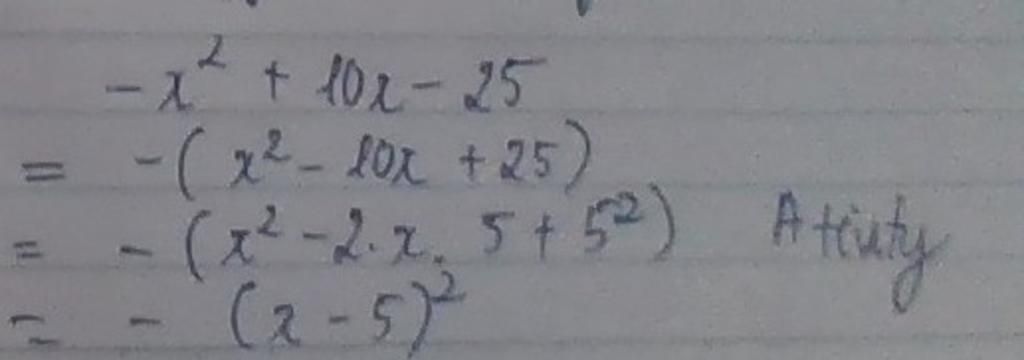 -x² + 10x - 25
= -( x² - 10x + 25)
= - (x² - 2. x. 5 + 5²)
= - (x - 5)²